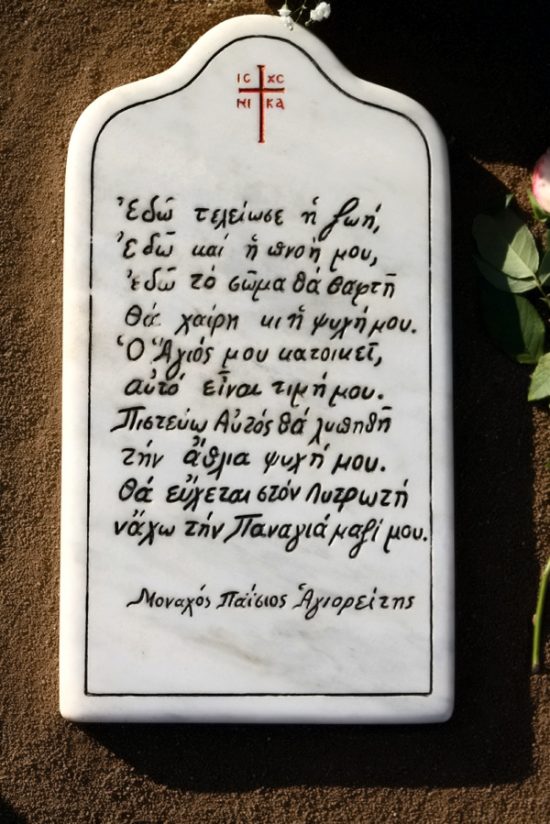 ΙC XC
ΝΙ ΚΑ
Ἐδῶ τελείωσε ἡ ζωή,
Ἐδῶ καί ἡ πνοή μου,
Ἐδῶ τό σῶμα θά θαφτῆ
Θά χαίρη κι ἡ ψυχή μου.
Ὁ Ἅγιός μου κατοικεῖ,
αὐτό εἶναι τιμή μου.
Πιστεύω Αὐτός θά λυπηθῆ
τήν ἄθλια ψυχή μου.
Θά εὔχεται στόν Λυτρωτή
νἄχω τήν Παναγιά μαζί μου.
Μοναχός Παΐσιος Ἁγιορείτης